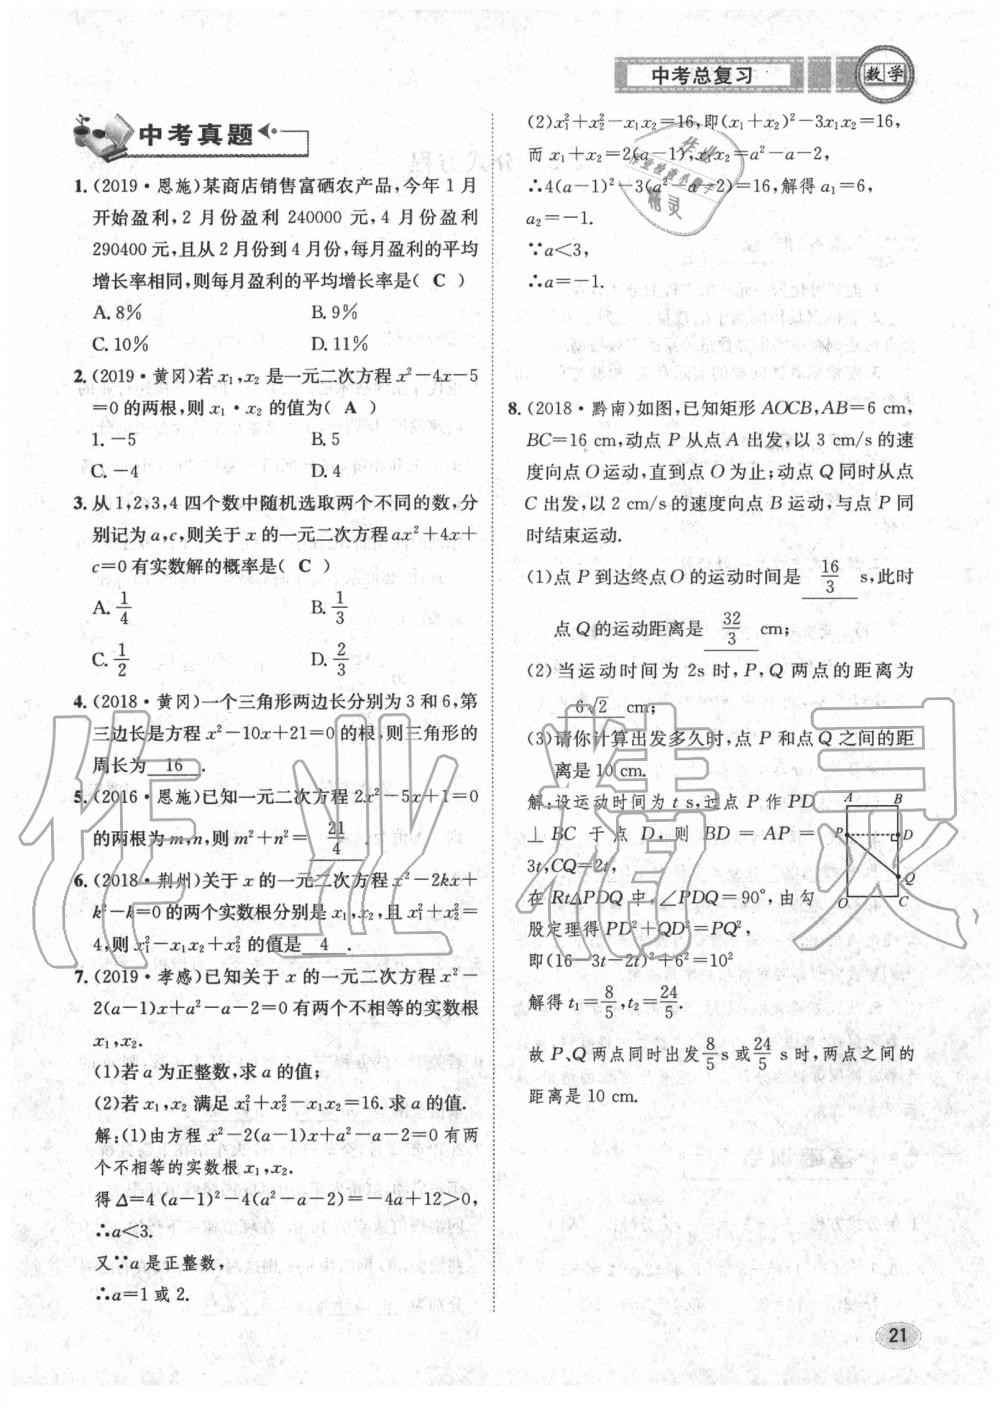 中考总复习 数学
中考真题
1. (2019·恩施)某商店销售富硒农产品,今年1月
开始盈利,2月份盈利 240000 元,4月份盈利
290400元,且从2月份到4月份,每月盈利的平均
增长率相同,则每月盈利的平均增长率是( C )
A. 8% B. 9%
C. 10% D. 11%
2. (2019·黄冈)若 x₁,x₂ 是一元二次方程 x²-4x-5
=0的两根,则 x₁·x₂ 的值为( A )
1. -5 B. 5
C. -4 D. 4
3. 从1,2,3,4四个数中随机选取两个不同的数,分
别记为a,c,则关于x的一元二次方程ax²+4x+
c=0有实数解的概率是( C )
A. 1/4 B. 1/3
C. 1/2 D. 2/3
4. (2018·黄冈)一个三角形两边长分别为3和6,第
三边长是方程 x²-10x+21=0的根,则三角形的
周长为 16 .
5. (2016·恩施)已知一元二次方程 2x²-5x+1=0
的两根为m,n,则 m²+n²= 21/4 .
6. (2018·荆州)关于x的一元二次方程 x²-2kx+
k²-k=0的两个实数根分别是x₁,x₂,且x₁²+x₂²=
4,则x₁²-x₁x₂+x₂²的值是 4 .
7. (2019·孝感)已知关于 x 的一元二次方程 x²-
2(a-1)x+a²-a-2=0有两个不相等的实数根
x₁,x₂.
(1)若a为正整数,求a的值;
(2)若x₁,x₂ 满足x₁²+x₂²-x₁x₂=16.求a的值.
解:(1)由方程 x²-2(a-1)x+a²-a-2=0有两
个不相等的实数根x₁,x₂.
得Δ=4(a-1)²-4(a²-a-2)=-4a+12>0,
∴a<3.
又∵a是正整数,
∴a=1或2.
(2)x₁²+x₂²-x₁x₂=16,即(x₁+x₂)²-3x₁x₂=16,
而 x₁+x₂=2(a-1),x₁x₂=a²-a-2,
∴4(a-1)²-3(a²-a-2)=16,解得a₁=6,
a₂=-1.
∵a<3,
∴a=-1.
8. (2018·黔南)如图,已知矩形AOCB,AB=6 cm,
BC=16 cm,动点 P 从点 A 出发,以 3 cm/s 的速
度向点O运动,直到点O为止;动点Q同时从点
C出发,以2 cm/s的速度向点B运动,与点P同
时结束运动.
(1)点 P 到达终点O 的运动时间是 16/3 s,此时
点Q的运动距离是 32/3 cm;
(2)当运动时间为 2s 时,P,Q 两点的距离为
6√2 cm;
(3)请你计算出发多久时,点 P 和点Q 之间的距
离是10 cm.
解:设运动时间为 t s,过点 P 作 PD
⊥ BC 于点 D, 则 BD = AP =
3t,CQ=2t,
在 Rt△PDQ 中,∠PDQ=90°,由勾
股定理得PD²+QD²=PQ²,
即(16-3t-2t)²+6²=10²
解得 t₁=8/5,t₂=24/5.
故 P、Q 两点同时出发8/5 s或24/5 s时,两点之间的
距离是10 cm.
A B
P D
Q
O C
21
作业
作业检查小帮手
精灵
作业精灵